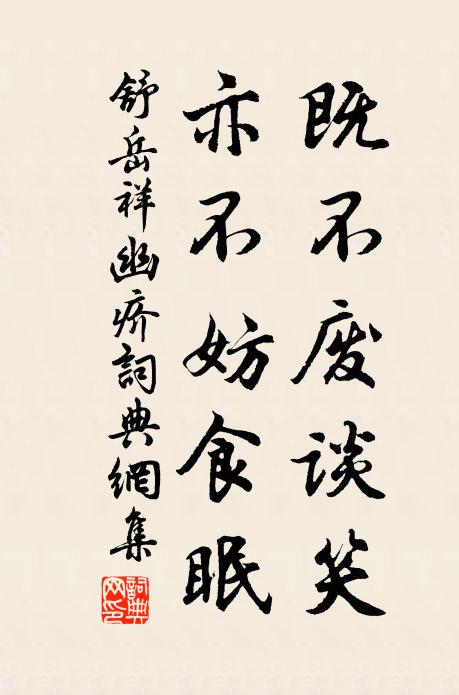 既不废谈笑
亦不妨食眠
舒岳祥幽疥詞典網集
詞典網印